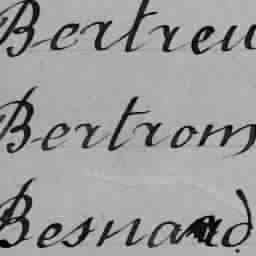 Bertreu
Bertrom
Besnard